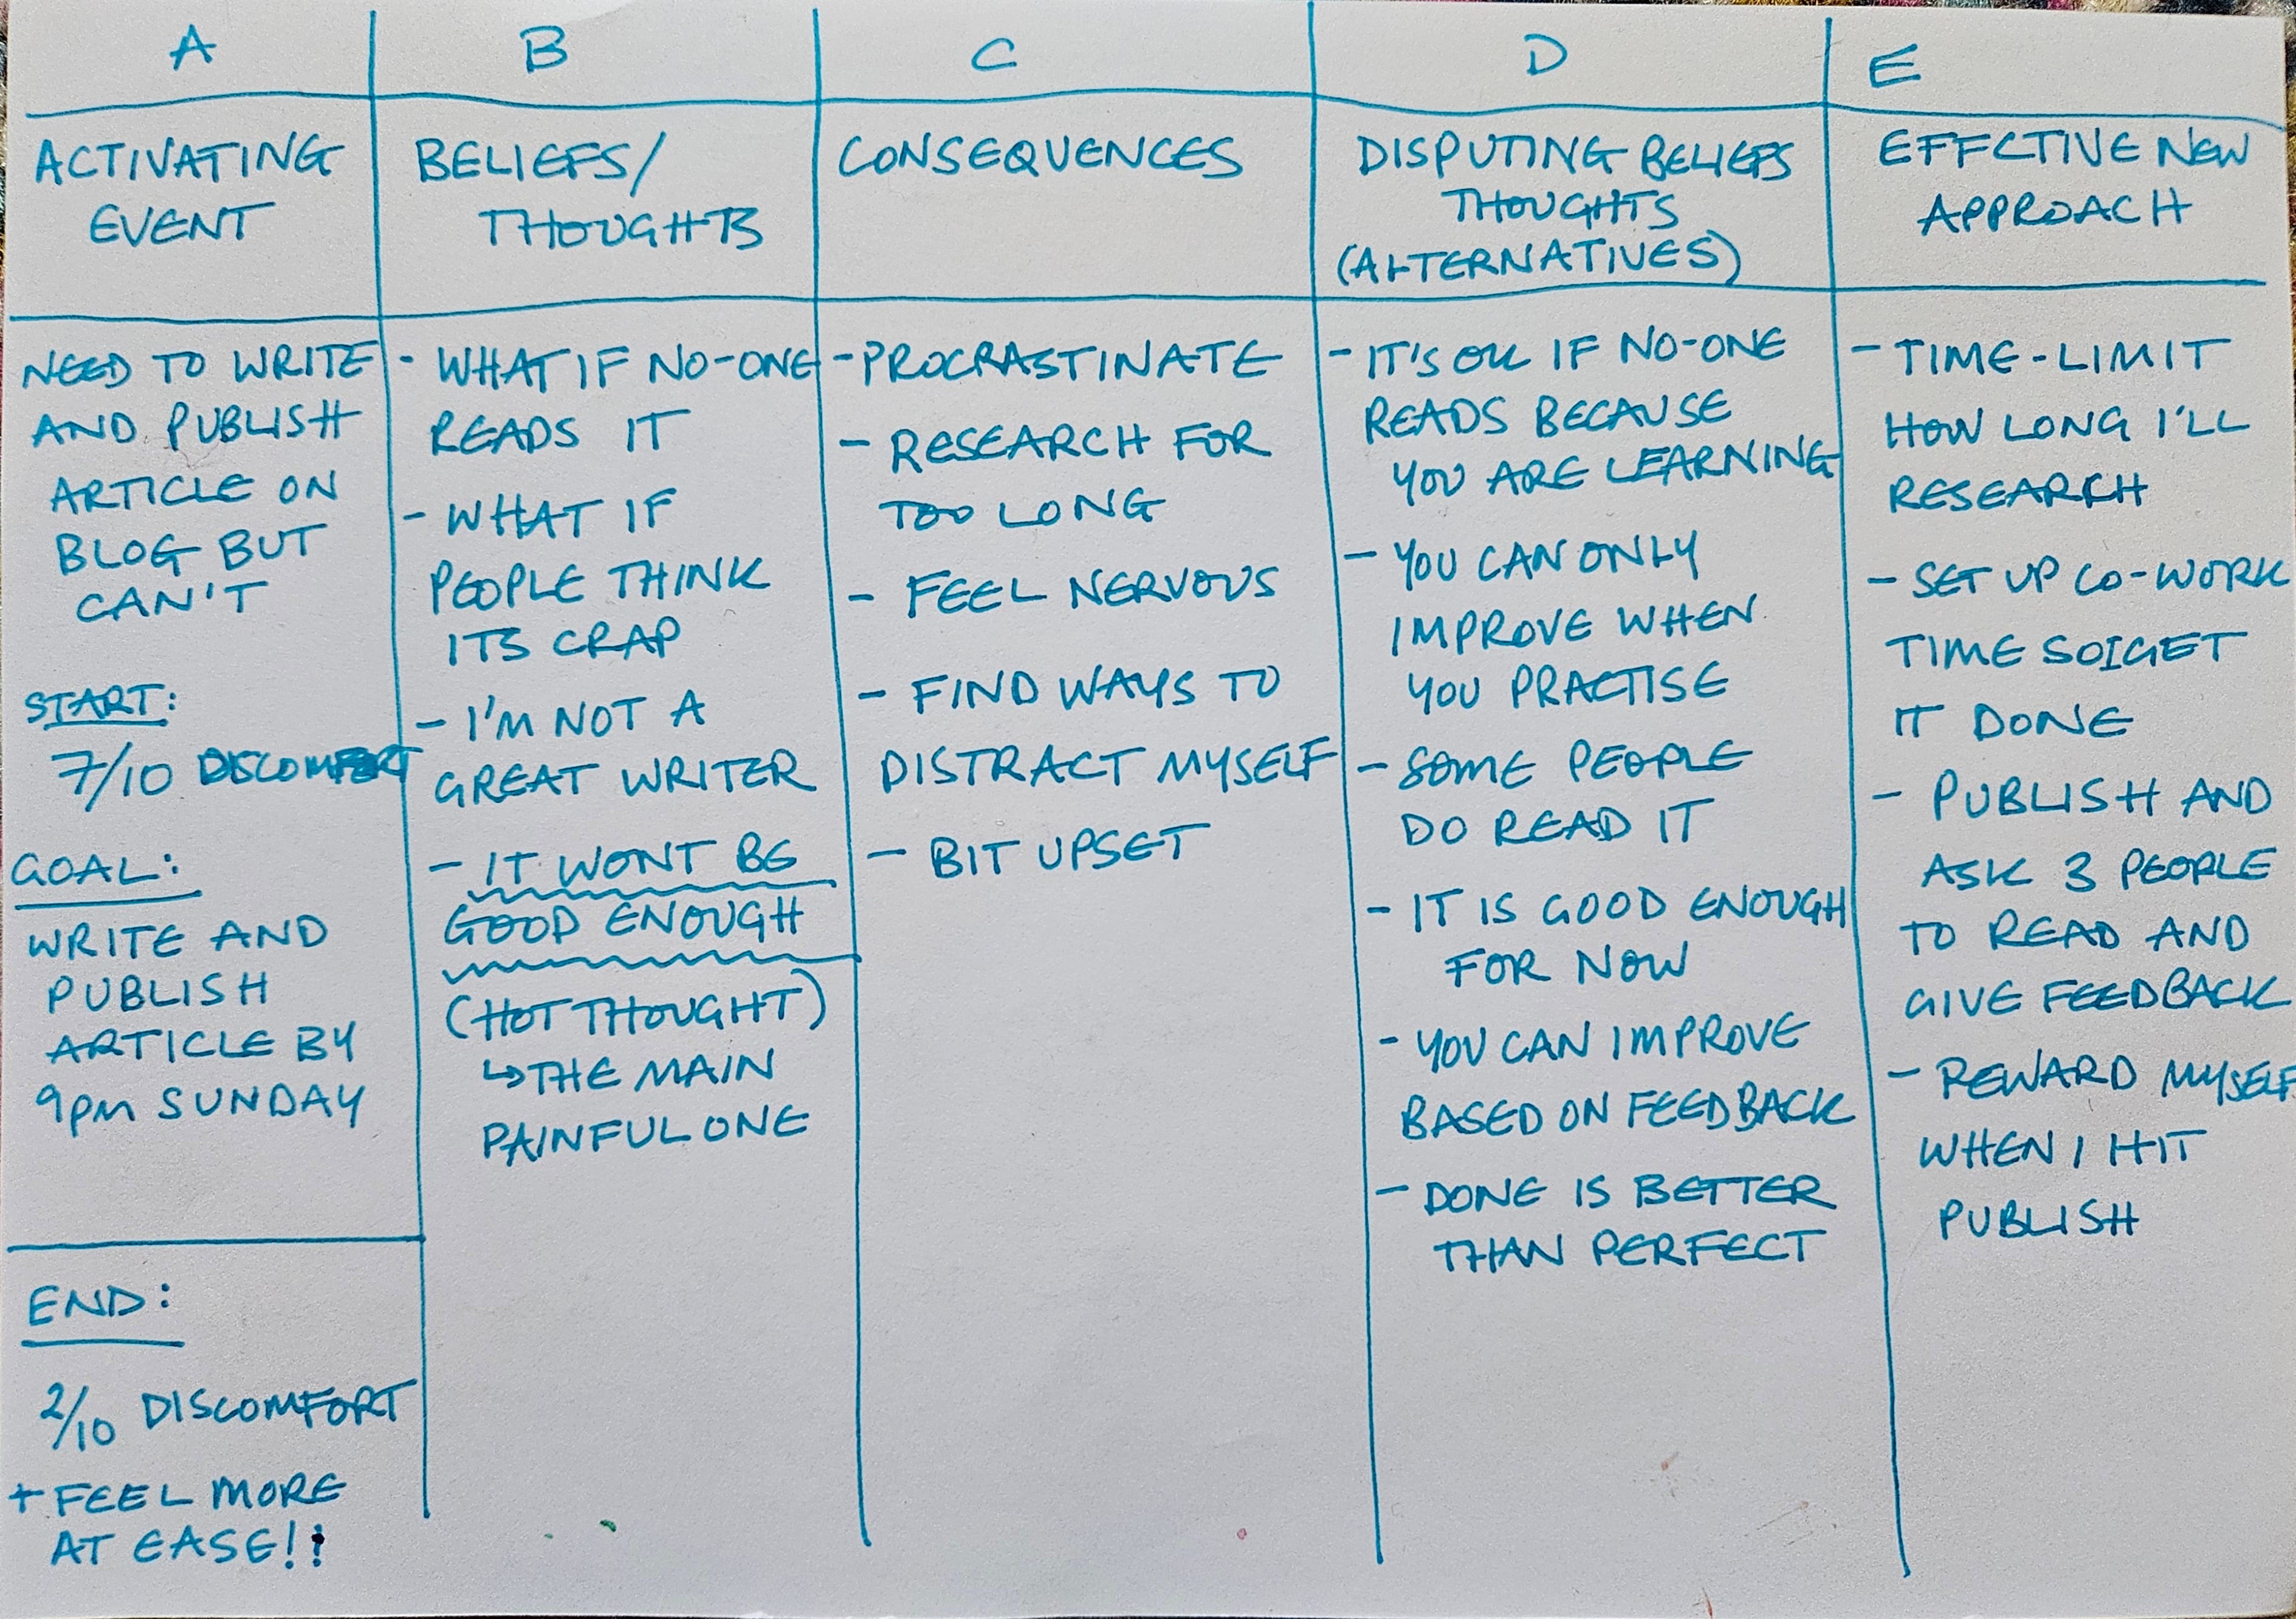 A
ACTIVATING
EVENT
NEED TO WRITE
AND PUBLISH
ARTICLE ON
BLOG BUT
CAN'T
START:
7/10 DISCOMFORT
GOAL:
WRITE AND
PUBLISH
ARTICLE BY
9PM SUNDAY
END:
2/10 DISCOMFORT
+ FEEL MORE
AT EASE!!
B
BELIEFS/
THOUGHTS
- WHAT IF NO-ONE
READS IT
- WHAT IF
PEOPLE THINK
ITS CRAP
- I'M NOT A
GREAT WRITER
- IT WONT BE
GOOD ENOUGH
(HOT THOUGHT)
↳ THE MAIN
PAINFUL ONE
C
CONSEQUENCES
- PROCRASTINATE
- RESEARCH FOR
TOO LONG
- FEEL NERVOUS
- FIND WAYS TO
DISTRACT MYSELF
- BIT UPSET
D
DISPUTING BELIEFS
THOUGHTS
(ALTERNATIVES)
- IT'S OK IF NO-ONE
READS BECAUSE
YOU ARE LEARNING
- YOU CAN ONLY
IMPROVE WHEN
YOU PRACTISE
- SOME PEOPLE
DO READ IT
- IT IS GOOD ENOUGH
FOR NOW
- YOU CAN IMPROVE
BASED ON FEEDBACK
- DONE IS BETTER
THAN PERFECT
E
EFFCTIVE NEW
APPROACH
- TIME-LIMIT
HOW LONG I'LL
RESEARCH
- SET UP CO-WORK
TIME SO I GET
IT DONE
- PUBLISH AND
ASK 3 PEOPLE
TO READ AND
GIVE FEEDBACK
- REWARD MYSELF
WHEN I HIT
PUBLISH